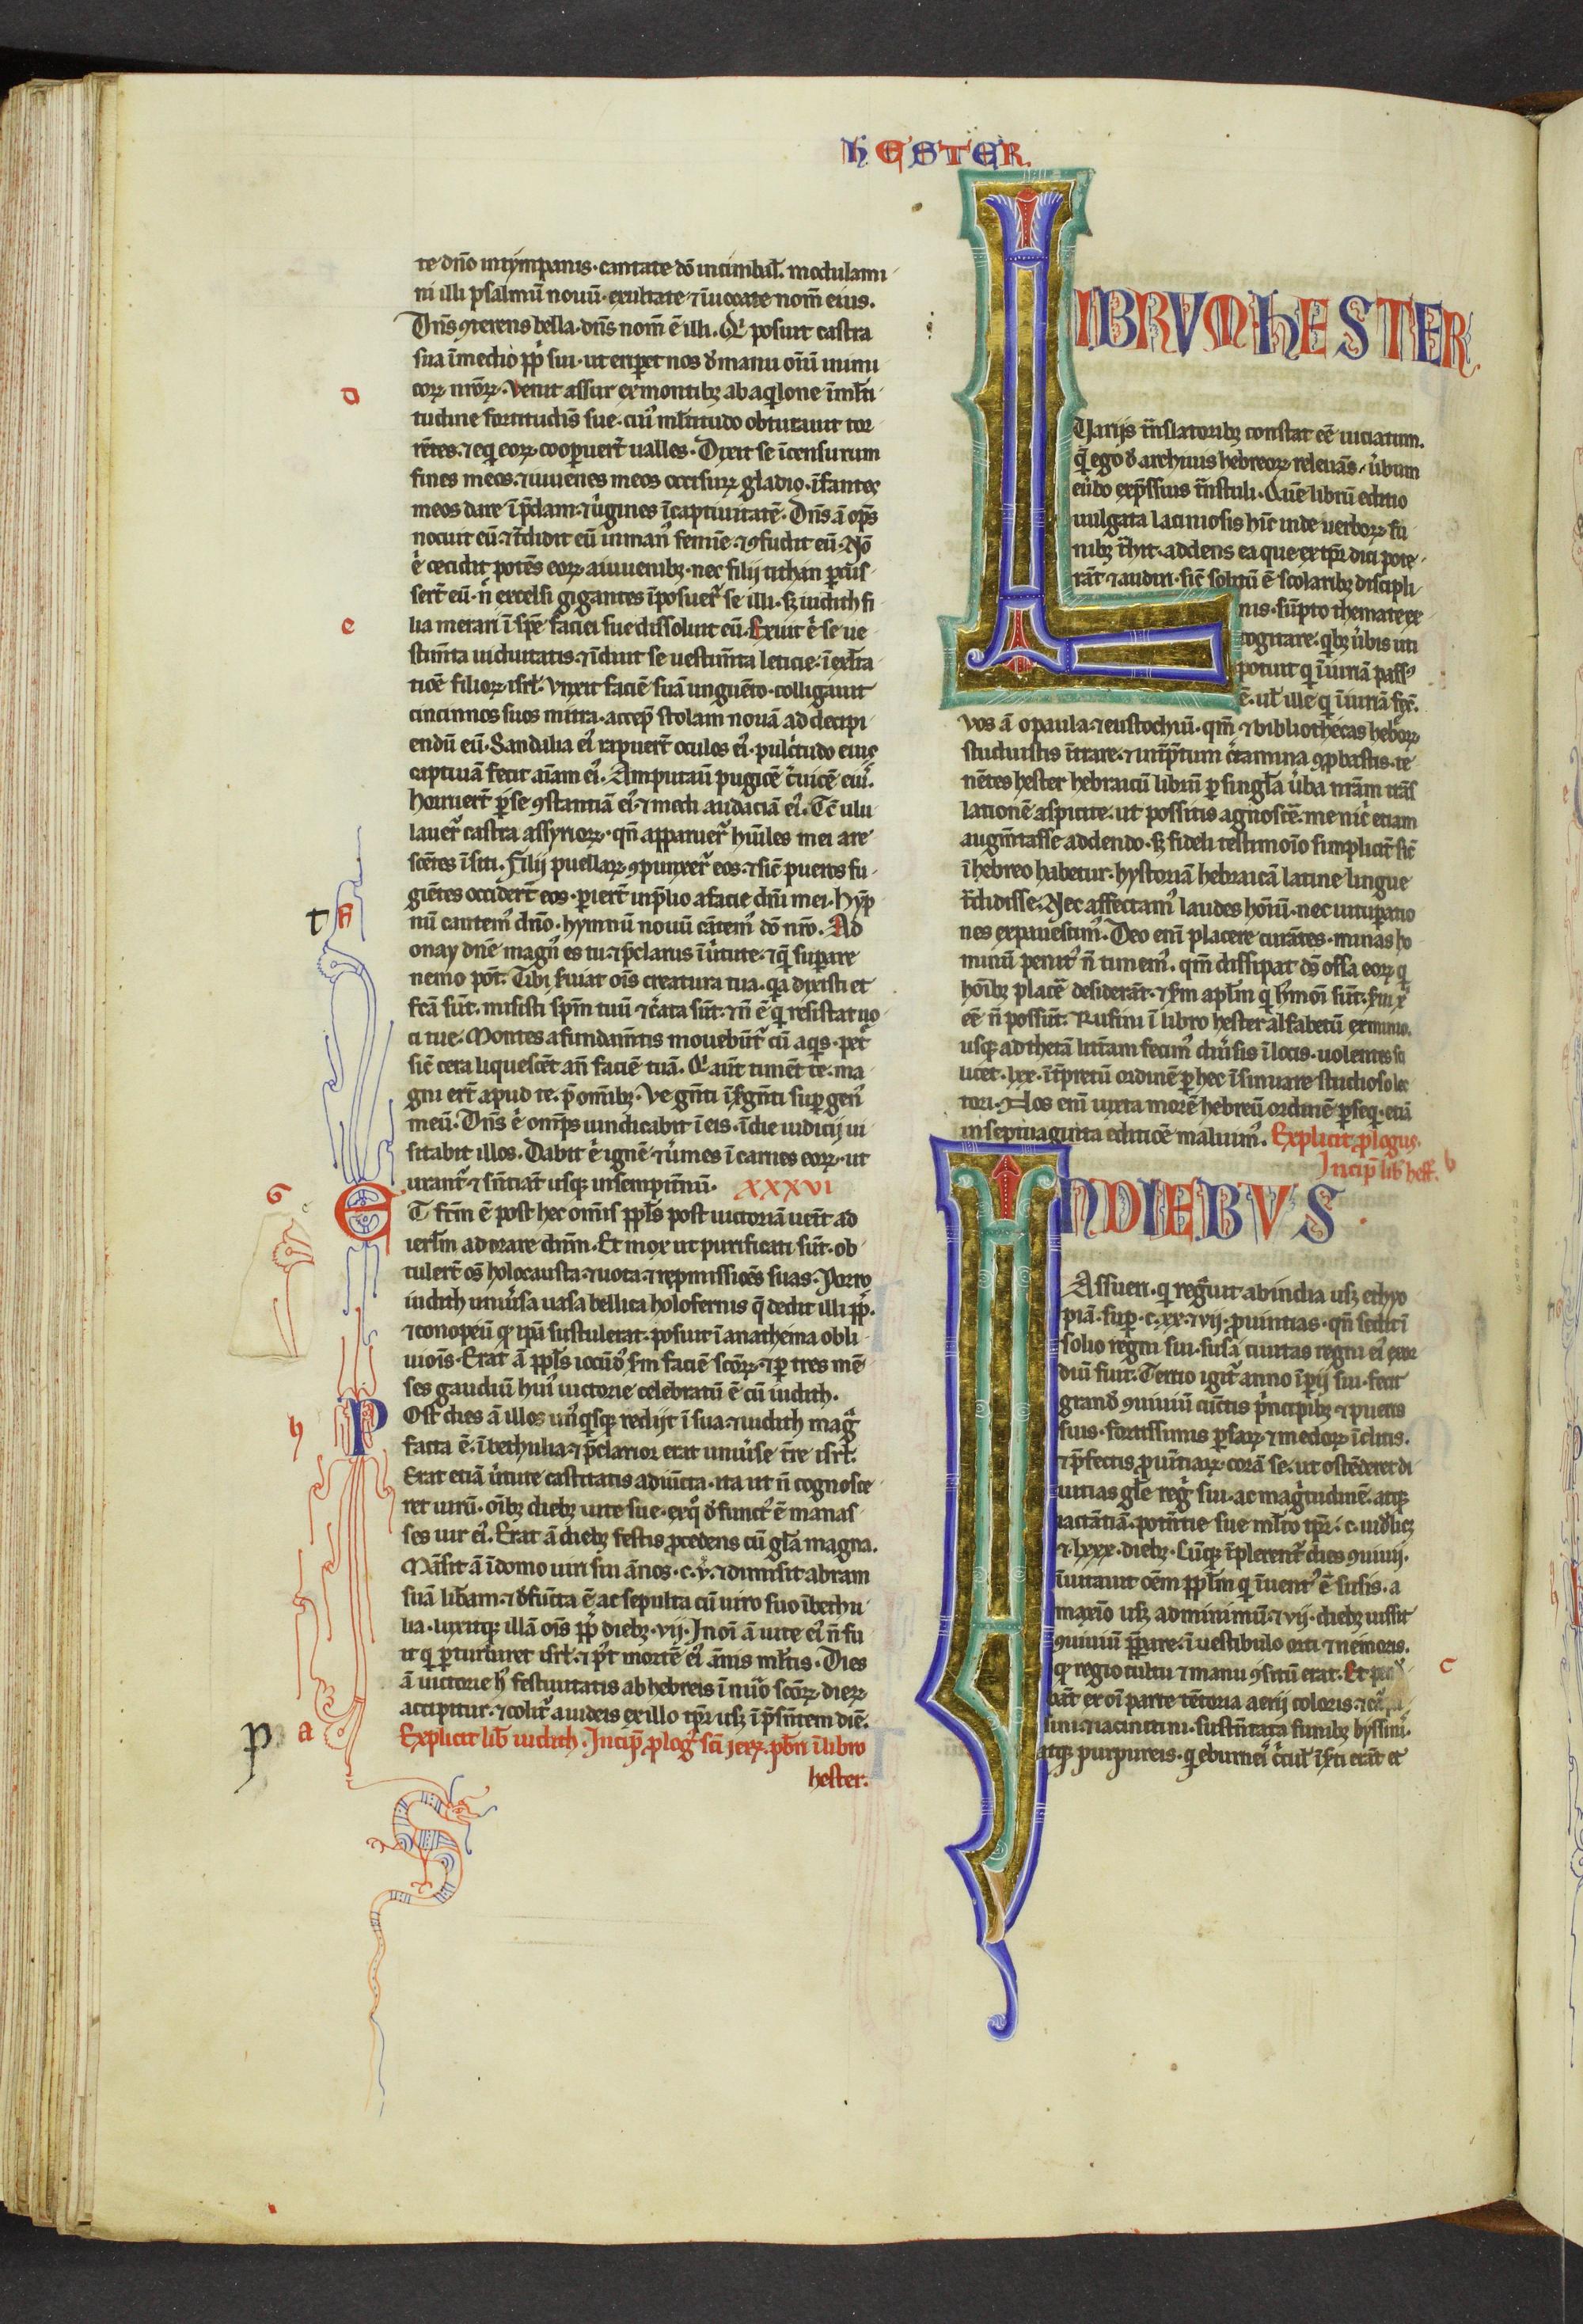 HESTER.
te dño in tỹmpanis · cantate dõ in cimbal̃ · modulami
ni illi psalmũ nouũ · exultate ⁊ ĩuocate nom̃ eius.
Dñs ꝯterens bella · dñs nom̃ ẽ illi. Q̇ posuit castra
sua ĩ medio pp̃ sui · ut erip̃et nos d̃ manu oĩũ inimi
coꝝ nr̃oꝝ. Venit assur ex montibꝫ ab aq̇lone ĩ ml̃ti
d
tudine fortitudĩs sue · cuiꝰ ml̃titudo obturauit tor
rẽtes · ⁊ eq̇ eoꝝ cooperuer̃t ualles. Dixit se ĩcensurum
fines meos · ⁊ iuuenes meos occisuꝝ gladio · ĩfantes
meos dare ĩ p̃dam · ⁊ ũgines ĩ captiuitatẽ. Dñs ã op̃s
nocuit eũ · ⁊ t̃didit eũ in manꝰ femĩe · ⁊ ꝯfudit eũ. Nõ
ẽ cecidit potẽs eoꝝ a iuuenibꝫ · nec filij tithan ꝑcus̃
ser̃t eũ · ñ excelsi gigantes ĩposuer̃ se illi · sꝫ iudith fi
e
lia merari ĩ spẽ faciei sue dissoluit eũ. Exuit ẽ se ue
stim̃ta uiduitatis · ⁊ ĩduit se uestim̃ta leticie · ĩ exl̃ta
tiõe filioꝝ isrl̃. Vnxit faciẽ suã unguẽto · colligauit
cincinnos suos mitra · accep̃ stolam nouã ad decipi
endũ eũ. Sandalia eiꝰ rapuer̃t oculos eiꝰ · pulc̃tudo eius
captiuã fecit aĩam eiꝰ. Amputauit pugiõe c̃uicẽ eiꝰ.
Horruer̃t ꝑse ꝯstantiã eiꝰ · ⁊ medi audaciã eiꝰ. Tc̃ ulu
lauer̃ castra assyrioꝝ · qñ apparuer̃ hũiles mei are
scẽtes ĩ siti. Filij puellaꝝ ꝯpunxer̃ eos · ⁊ sic̃ pueros fu
giẽtes occider̃t eos · perier̃t in p̃lio a facie dñi mei. Hym
t a
nũ cantemꝰ dño · hymnũ nouũ cãtemꝰ dõ nr̃o. Ad
onay dñe magnꝰ es tu · ⁊ p̃clarus ĩ ũtute · ⁊ q̃ suꝑare
nemo pot̃. Tibi s̃uiat oĩs creatura tua · q̇a dixisti et
fc̃ã sũt · misisti spm̃ tuũ ⁊ c̃ata sũt · ⁊ ñ ẽ q̇ resistat uo
ci tue. Montes a fundam̃tis mouebũt̃ cũ aq̇s · pet̃
sic̃ cera liquescẽt añ faciẽ tuã. Q̇ aut̃ timẽt te · ma
gni er̃t apud te · ꝑ om̃ibꝫ. Ve gñti ĩs̃gñti suꝑ genꝰ
meũ. Dñs ẽ omp̃s uindicabit ĩ eis · ĩ die iudicij ui
sitabit illos. Dabit ẽ ignẽ ⁊ ũmes ĩ carnes eoꝝ · ut
urant̃ ⁊ sñtiãt usqꝫ in sempiternũ. XXXVI
6
ET fc̃m ẽ post hec om̃is ppl̃s post uictoriã uẽit ad
ierl̃m adorare dñm. Et mox ut purificati sũt · ob
tuler̃t oẽs holocausta · ⁊ uota · ⁊ repmissiões suas. Porro
iudith uniũsa uasa bellica holofernis q̃ dedit illi pp̃ĺs.
⁊ conopeũ qꝫ ip̃a sustulerat · posuit ĩ anathema obli
uiois. Erat ã ppl̃s iocũdꝰ s̃m faciẽ sc̃oꝝ · ⁊ ꝑ tres mẽ
ses gaudiũ huiꝰ uictorie celebratũ ẽ cũ iudith.
h
Post dies ã illos unꝰq̇sqꝫ redijt ĩ sua · ⁊ iudith mag̃
facta ẽ ĩ bethulia · ⁊ p̃clarior erat uniũse t̃re isrl̃.
Erat etiã ũtute castitatis adiũcta · ita ut ñ cognosce
ret uirũ · oĩbꝫ diebꝫ uite sue · ex q̃ d̃functꝰ ẽ manas
ses uir eiꝰ. Erat ã diebꝫ festis procedens cũ gl̃a magna.
Mãsit ã ĩ domo uiri sui ãnos · c · v · ⁊ dimisit abram
suã lib̃am · ⁊ d̃fũcta ẽ ac sepulta cũ uiro suo ĩ bethu
lia · luxitqꝫ illã oĩs pp̃ĺs diebꝫ · vij. In oĩ ã uite eiꝰ ñ fu
it q̇ ꝑturbaret isrl̃ · ⁊ p̃t mortẽ eiꝰ ãnis ml̃tis. Dies
ã uictorie hꝰ festiuitatis ab hebreis ĩ nũo sc̃oꝝ dieꝝ
accipitur · ⁊ colit̃ a iudeis ex illo tp̃r usꝫ ĩ p̃sentem diẽ.
p a
Explicit lib̃ iudith. Incip̃ plog̃ sc̃i jeꝝ · pb̃ri ĩ libro
hester.
LIBRUM HESTER
Uarijs t̃nslatoribꝫ constat eẽ uiciatum.
q̃ ego d̃ archiuis hebreoꝝ releuãs · ũbum
eũbo exp̃ssius t̃nstuli. Quẽ librũ editio
uulgata laciniosis hĩc inde uerboꝝ fu
nibꝫ t̃hit · addens ea que ex tp̃r dici pote
rãt ⁊ audiri · sic̃ solitũ ẽ scolaribꝫ discipli
nis · sũpto themate ex
cogitare · q̇bꝫ ũbis uti
potuit q̇ ĩiuriã passꝰ
ẽ · ul̃ ille q̇ ĩiuriã fec̃.
Vos ã o paula ⁊ eustochiũ · qm̃ ⁊ bibliothecas hebreoꝝ
studuistis ĩtrare · ⁊ int̃p̃tum c̃tamina ꝯprobastis · te
nẽtes hester hebraicũ librũ ꝑ singl̃a ũba nr̃am trãs
lationẽ aspicite · ut possitis agnosce · me nic̃ etiam
augm̃tasse addendo · sꝫ fideli testimoĩo simpliciter sic̃
ĩ hebreo habetur · hystoriã hebraicã latine lingue
t̃didisse. Nec affectamꝰ laudes hoĩũ · nec uituꝑatio
nes expauescimꝰ. Deo eni placere curãtes · minas ho
minũ penitꝰ ñ timemꝰ. qm̃ dissipat dꝰs ossa eoꝝ q̇
hoĩbꝫ placẽ desiderãt · ⁊ s̃m apl̃m q̇ hꝰmõi sũt · s̃ui xꝰ
eẽ ñ possũt. Rursũ ĩ libro hester alfabetũ ex minio
usqꝫ ad thetã litt̃am fecimꝰ diũsis ĩ locis · uolentes sci
licet · lxx · ĩt̃pretũ ordinẽ ꝑ hec ĩsinuare studioso lec
tori. Nos eni iuxta morẽ hebreũ ordinẽ ꝑseq̇ · etiã
in septuaginta editiõe maluimꝰ. Explicit plogus.
Incip̃ lib̃ hest̃. b
IN DIEBVS
Assueri · q̇ regnauit ab india usꝫ ethyo
piã · suꝑ · c · xx · ⁊ vij · prouintias · qñ sedit ĩ
solio regni sui · susã ciuitas regni eiꝰ exor
diũ fuit. Tertio igit̃ anno ĩꝑij sui · fecit
grand̃ ꝯuiuiũ cũctis p̃ncipibꝫ ⁊ pueris
suis · fortissimis ꝑsaꝝ ⁊ medoꝝ ĩclitis ·
⁊ p̃fectis prouĩtiaꝝ corã se · ut ostẽderet di
uitias gl̃e regꝰ sui · ac magñtudinẽ · atqꝫ
iactãtiã · potẽtie sue ml̃to tp̃r · c · uid̃licꝫ
⁊ lxxx · diebꝫ. Cũqꝫ ĩplerent̃ dies ꝯuiuij ·
ĩuitauit oẽm ppl̃m q̇ ĩuentꝰ ẽ susis · a
maxĩo usꝫ ad minimũ · ⁊ vij · diebꝫ iussit
ꝯuiuiũ p̃ꝑare · ĩ uestibulo orti ⁊ nemoris ·
c
qꝫ regio cultu ⁊ manu ꝯsitũ erat. Et
bãt ex oĩ parte tẽtoria aerij coloris ·
sini · ⁊ iacinctini · sustẽtata funibꝫ byssinis
atqꝫ purpureis · q̇ eburneis c̃cul̃ ĩs̃ti erãt et